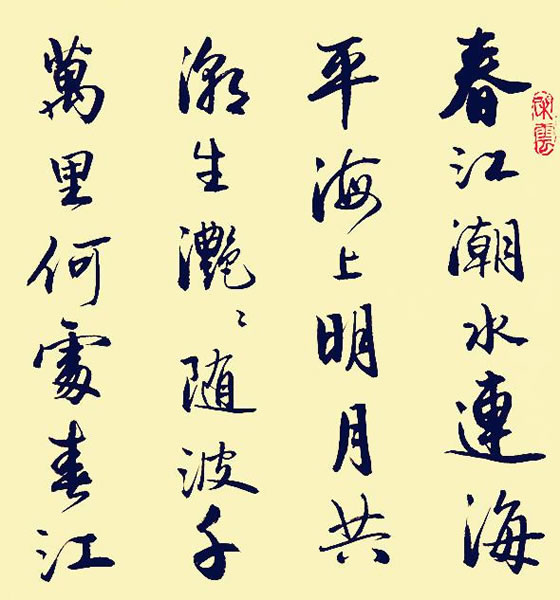 春江潮水連海
平海上明月共
潮生灔〻随波千
萬里何處春江